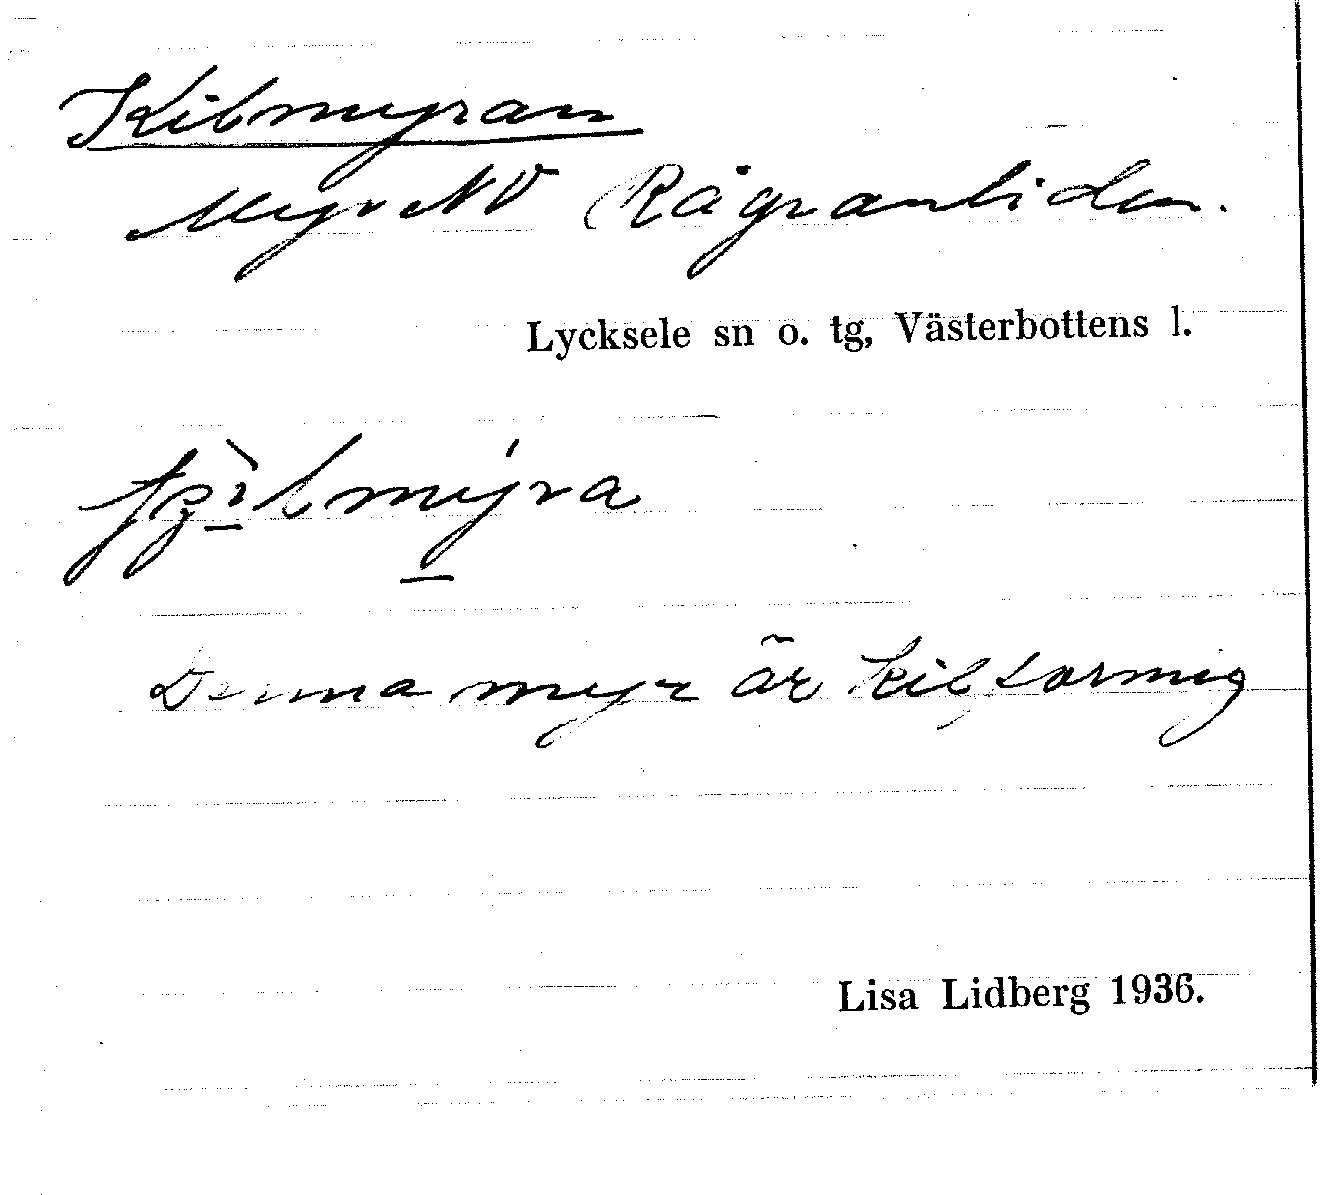 Kilmyran
Myr NV Rågranliden.
Lycksele sn o. tg, Västerbottens l.
Denna myr är kilformig
Lisa Lidberg 1936.